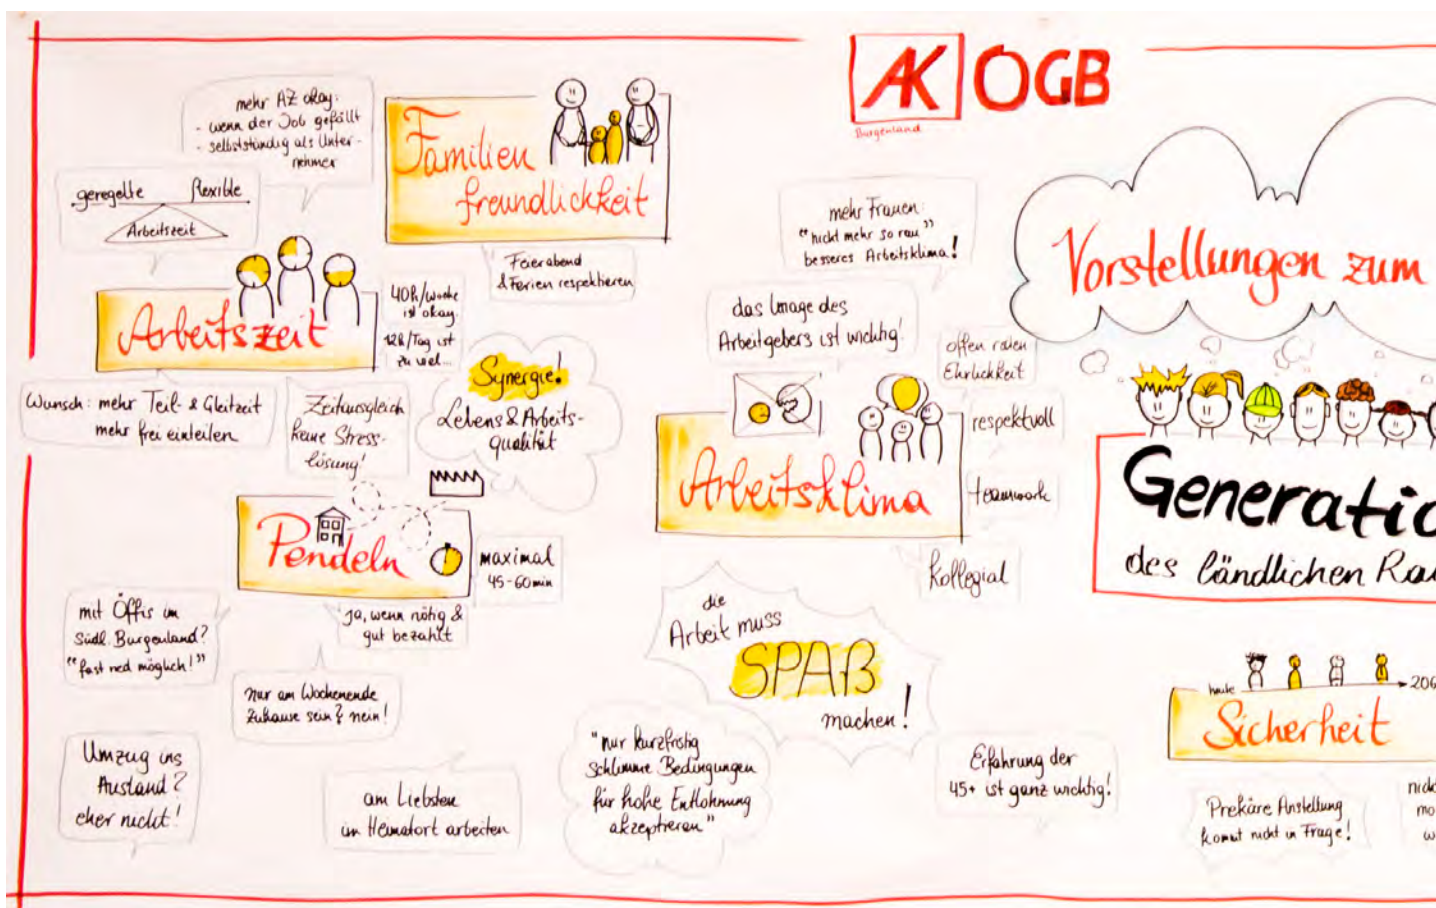 AK ÖGB
Burgenland
mehr AZ okay:
- wenn der Job gefällt
- selbstständig als Unter-
nehmer
geregelte flexible
Arbeitszeit
Familien
freundlichkeit
Feierabend
& Ferien respektieren
Arbeitszeit
40h/Woche
ist okay.
12h/Tag ist
zu viel...
Wunsch: mehr Teil- & Gleitzeit
mehr frei einteilen
Zeitausgleich
keine Stress-
lösung!
Synergie!
Lebens & Arbeits-
qualität
Pendeln
maximal
45-60min
ja, wenn nötig &
gut bezahlt
mit Öffis im
Südl. Burgenland?
"fast ned möglich!"
nur am Wochenende
Zuhause sein? nein!
Umzug ins
Ausland?
eher nicht!
am Liebsten
im Heimatort arbeiten
mehr Frauen:
"nicht mehr so rau"
besseres Arbeitsklima!
das Image des
Arbeitgebers ist wichtig!
offen reden
Ehrlichkeit
respektvoll
teamwork
kollegial
Arbeitsklima
die
Arbeit muss
SPAß
machen!
"nur kurzfristig
schlimme Bedingungen
für hohe Entlohnung
akzeptieren"
Erfahrung der
45+ ist ganz wichtig!
Vorstellungen zum
Generatio
des ländlichen Rau
heute 206
Sicherheit
Prekäre Anstellung
kommt nicht in Frage!
mo
w